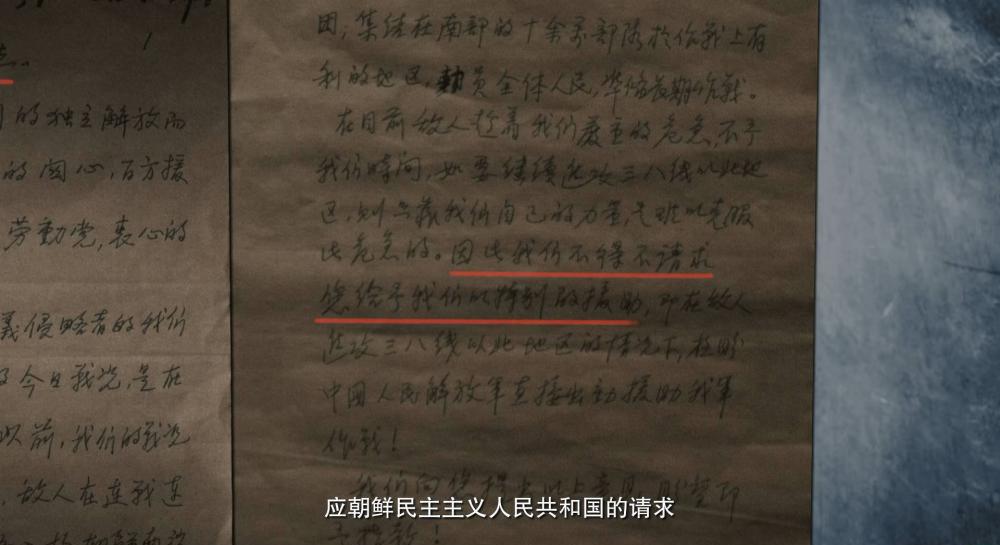 的独立解放而
的関心,百方援
劳動党,衷心的
義侵略者的我们
今日战况,是在
以前,我们的战况
敌人在连战连
团;集结在南部的十余万部队於作战上有
利的地区,動員全体人民,準备长期作战。
在目前敌人趁着我们严重的危急,不予
我们时间,如要继续进攻三八线以北地
区,则只靠我们自己的力量,是难以克服
此危急的。因此我们不得不请求
您给予我们以特别的援助,即在敌人
进攻三八线以北地区的情况下,极盼
中国人民解放军直接出動援助我军
作战!
我们向您提出以上意见,盼望即
予指教!
应朝鲜民主主义人民共和国的请求